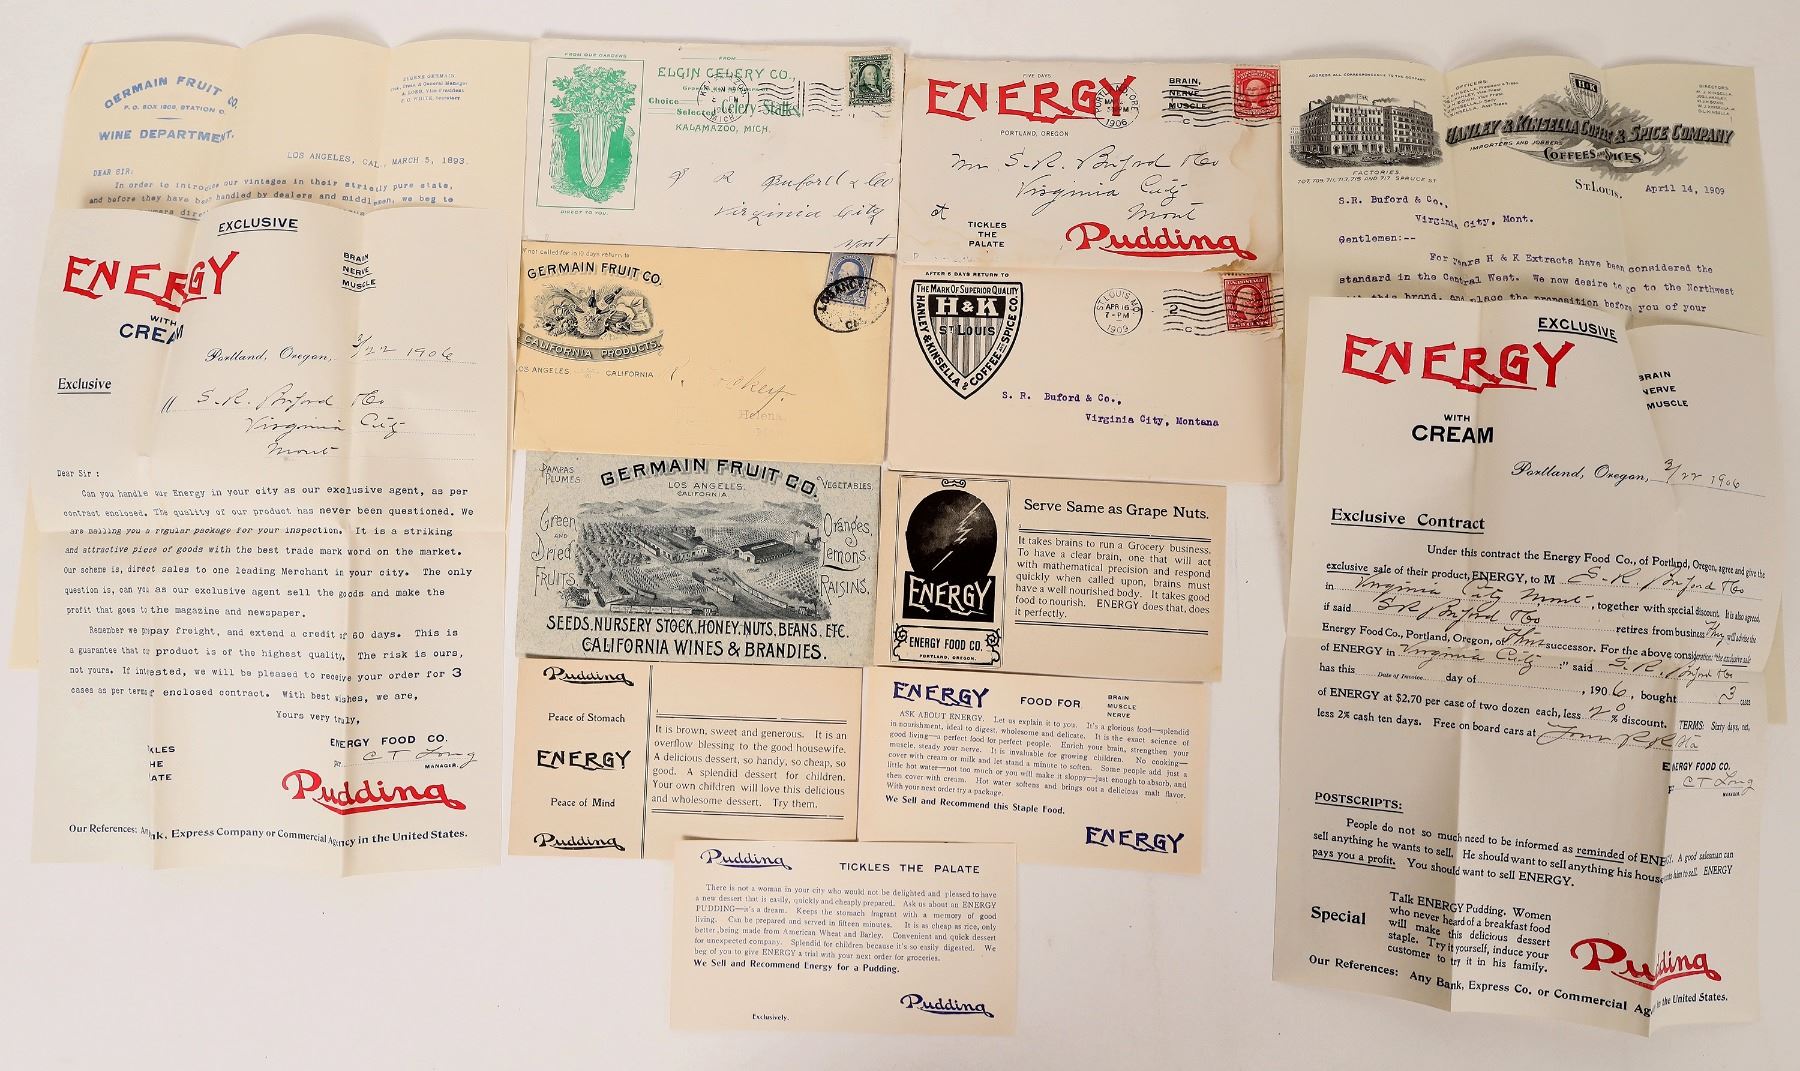 GERMAIN FRUIT CO.
P. O. BOX 1808, STATION C.
WINE DEPARTMENT.
EUGENE GERMAIN
LOS ANGELES, CAL., MARCH 5, 1893.
DEAR SIR:
In order to introduce our vintages in their strictly pure state,
and before they have been handled by dealers and middlemen, we beg to
EXCLUSIVE
ENERGY
BRAIN
NERVE
MUSCLE
WITH
CREAM
Portland, Oregon, 3/22 1906
Exclusive
S. R. Buford & Co
Virginia City
Mont
Dear Sir:
Can you handle our Energy in your city as our exclusive agent, as per
contract enclosed. The quality of our product has never been questioned. We
are mailing you a regular package for your inspection. It is a striking
and attractive piece of goods with the best trade mark word on the market.
Our scheme is, direct sales to one leading Merchant in your city. The only
question is, can you as our exclusive agent sell the goods and make the
profit that goes to the magazine and newspaper.
Remember we prepay freight, and extend a credit of 60 days. This is
a guarantee that the product is of the highest quality. The risk is ours,
not yours. If interested, we will be pleased to receive your order for 3
cases as per terms enclosed contract. With best wishes, we are,
Yours very truly,
ENERGY FOOD CO.
Per C T Long
MANAGER.
KLES
HE
ATE
Pudding
Our References: Any Bank, Express Company or Commercial Agency in the United States.
FROM OUR GARDENS
DIRECT TO YOU.
FROM
ELGIN CELERY CO.,
Choice
Selected Celery Stalks
KALAMAZOO, MICH.
S R Buford & Co
Virginia City
Mont
FIVE DAYS
ENERGY
PORTLAND, OREGON
BRAIN,
NERVE
MUSCLE
1906
Mr S. R. Buford & Co
Virginia City
Mont
TICKLES
THE
PALATE
Pudding
If not called for in 10 days return to
GERMAIN FRUIT CO.
CALIFORNIA PRODUCTS.
LOS ANGELES CALIFORNIA
LOS ANGELES
Helena
AFTER 5 DAYS RETURN TO
THE MARK OF SUPERIOR QUALITY
H & K
ST LOUIS
HANLEY & KINSELLA COFFEE AND SPICE CO.
ST. LOUIS, MO.
APR 16
7-PM
1909
2
C
S. R. Buford & Co.,
Virginia City, Montana
PAMPAS
PLUMES
GERMAIN FRUIT CO.
VEGETABLES.
LOS ANGELES.
CALIFORNIA
Green
AND
Dried
FRUITS.
Oranges,
Lemons,
RAISINS.
SEEDS, NURSERY STOCK, HONEY, NUTS, BEANS, ETC.
CALIFORNIA WINES & BRANDIES.
ENERGY
ENERGY FOOD CO.
PORTLAND, OREGON.
Serve Same as Grape Nuts.
It takes brains to run a Grocery business.
To have a clear brain, one that will act
with mathematical precision and respond
quickly when called upon, brains must
have a well nourished body. It takes good
food to nourish. ENERGY does that, does
it perfectly.
Pudding
Peace of Stomach
ENERGY
Peace of Mind
Pudding
It is brown, sweet and generous. It is an
overflow blessing to the good housewife.
A delicious dessert, so handy, so cheap, so
good. A splendid dessert for children.
Your own children will love this delicious
and wholesome dessert. Try them.
ENERGY
FOOD FOR
BRAIN
MUSCLE
NERVE
ASK ABOUT ENERGY. Let us explain it to you. It's a glorious food—splendid
in nourishment, ideal to digest, wholesome and delicate. It is the exact science of
good living—a perfect food for perfect people. Enrich your brain, strengthen your
muscle, steady your nerve. It is invaluable for growing children. No cooking—
cover with cream or milk and let stand a minute to soften. Some people add just a
little hot water—not too much or you will make it sloppy—just enough to absorb, and
then cover with cream. Hot water softens and brings out a delicious malt flavor.
With your next order try a package.
We Sell and Recommend this Staple Food.
ENERGY
Pudding
TICKLES THE PALATE
There is not a woman in your city who would not be delighted and pleased to have
a new dessert that is easily, quickly and cheaply prepared. Ask us about an ENERGY
PUDDING—it's a dream. Keeps the stomach fragrant with a memory of good
living. Can be prepared and served in fifteen minutes. It is as cheap as rice, only
better, being made from American Wheat and Barley. Convenient and quick dessert
for unexpected company. Splendid for children because it's so easily digested. We
beg of you to give ENERGY a trial with your next order for groceries.
We Sell and Recommend Energy for a Pudding.
Pudding
Exclusively.
ADDRESS ALL CORRESPONDENCE TO THE COMPANY
OFFICERS:
DIRECTORS
H&K
HANLEY & KINSELLA COFFEE & SPICE COMPANY
IMPORTERS AND JOBBERS
COFFEES AND SPICES
FACTORIES
707, 709, 711, 713, 715 AND 717 SPRUCE ST.
ST. LOUIS, April 14, 1909
S.R. Buford & Co.,
Virginia City, Mont.
Gentlemen:--
For years H & K Extracts have been considered the
standard in the Central West. We now desire to go to the Northwest
this brand, and place the proposition before you of your
EXCLUSIVE
ENERGY
BRAIN
NERVE
MUSCLE
WITH
CREAM
Portland, Oregon, 3/22 1906
Exclusive Contract
Under this contract the Energy Food Co., of Portland, Oregon, agree and give the
exclusive sale of their product, ENERGY, to M S. R. Buford & Co
in Virginia City Mont, together with special discount. It is also agreed,
if said S R Buford & Co retires from business they will advise the
Energy Food Co., Portland, Oregon, of their successor. For the above consideration: "the exclusive sale
of ENERGY in Virginia City" said S. R. Buford & Co
has this Date of Invoice day of , 1906, bought 3 cases
of ENERGY at $2.70 per case of two dozen each, less 20 % discount. TERMS: Sixty days, net,
less 2% cash ten days. Free on board cars at
ENERGY FOOD CO.
C T Long
MANAGER.
POSTSCRIPTS:
People do not so much need to be informed as reminded of ENERGY. A good salesman can
sell anything he wants to sell. He should want to sell anything his house wants him to sell. ENERGY
pays you a profit. You should want to sell ENERGY.
Special
Talk ENERGY Pudding. Women
who never heard of a breakfast food
will make this delicious dessert
staple. Try it yourself, induce your
customer to try it in his family.
Pudding
Our References: Any Bank, Express Co. or Commercial Agency in the United States.